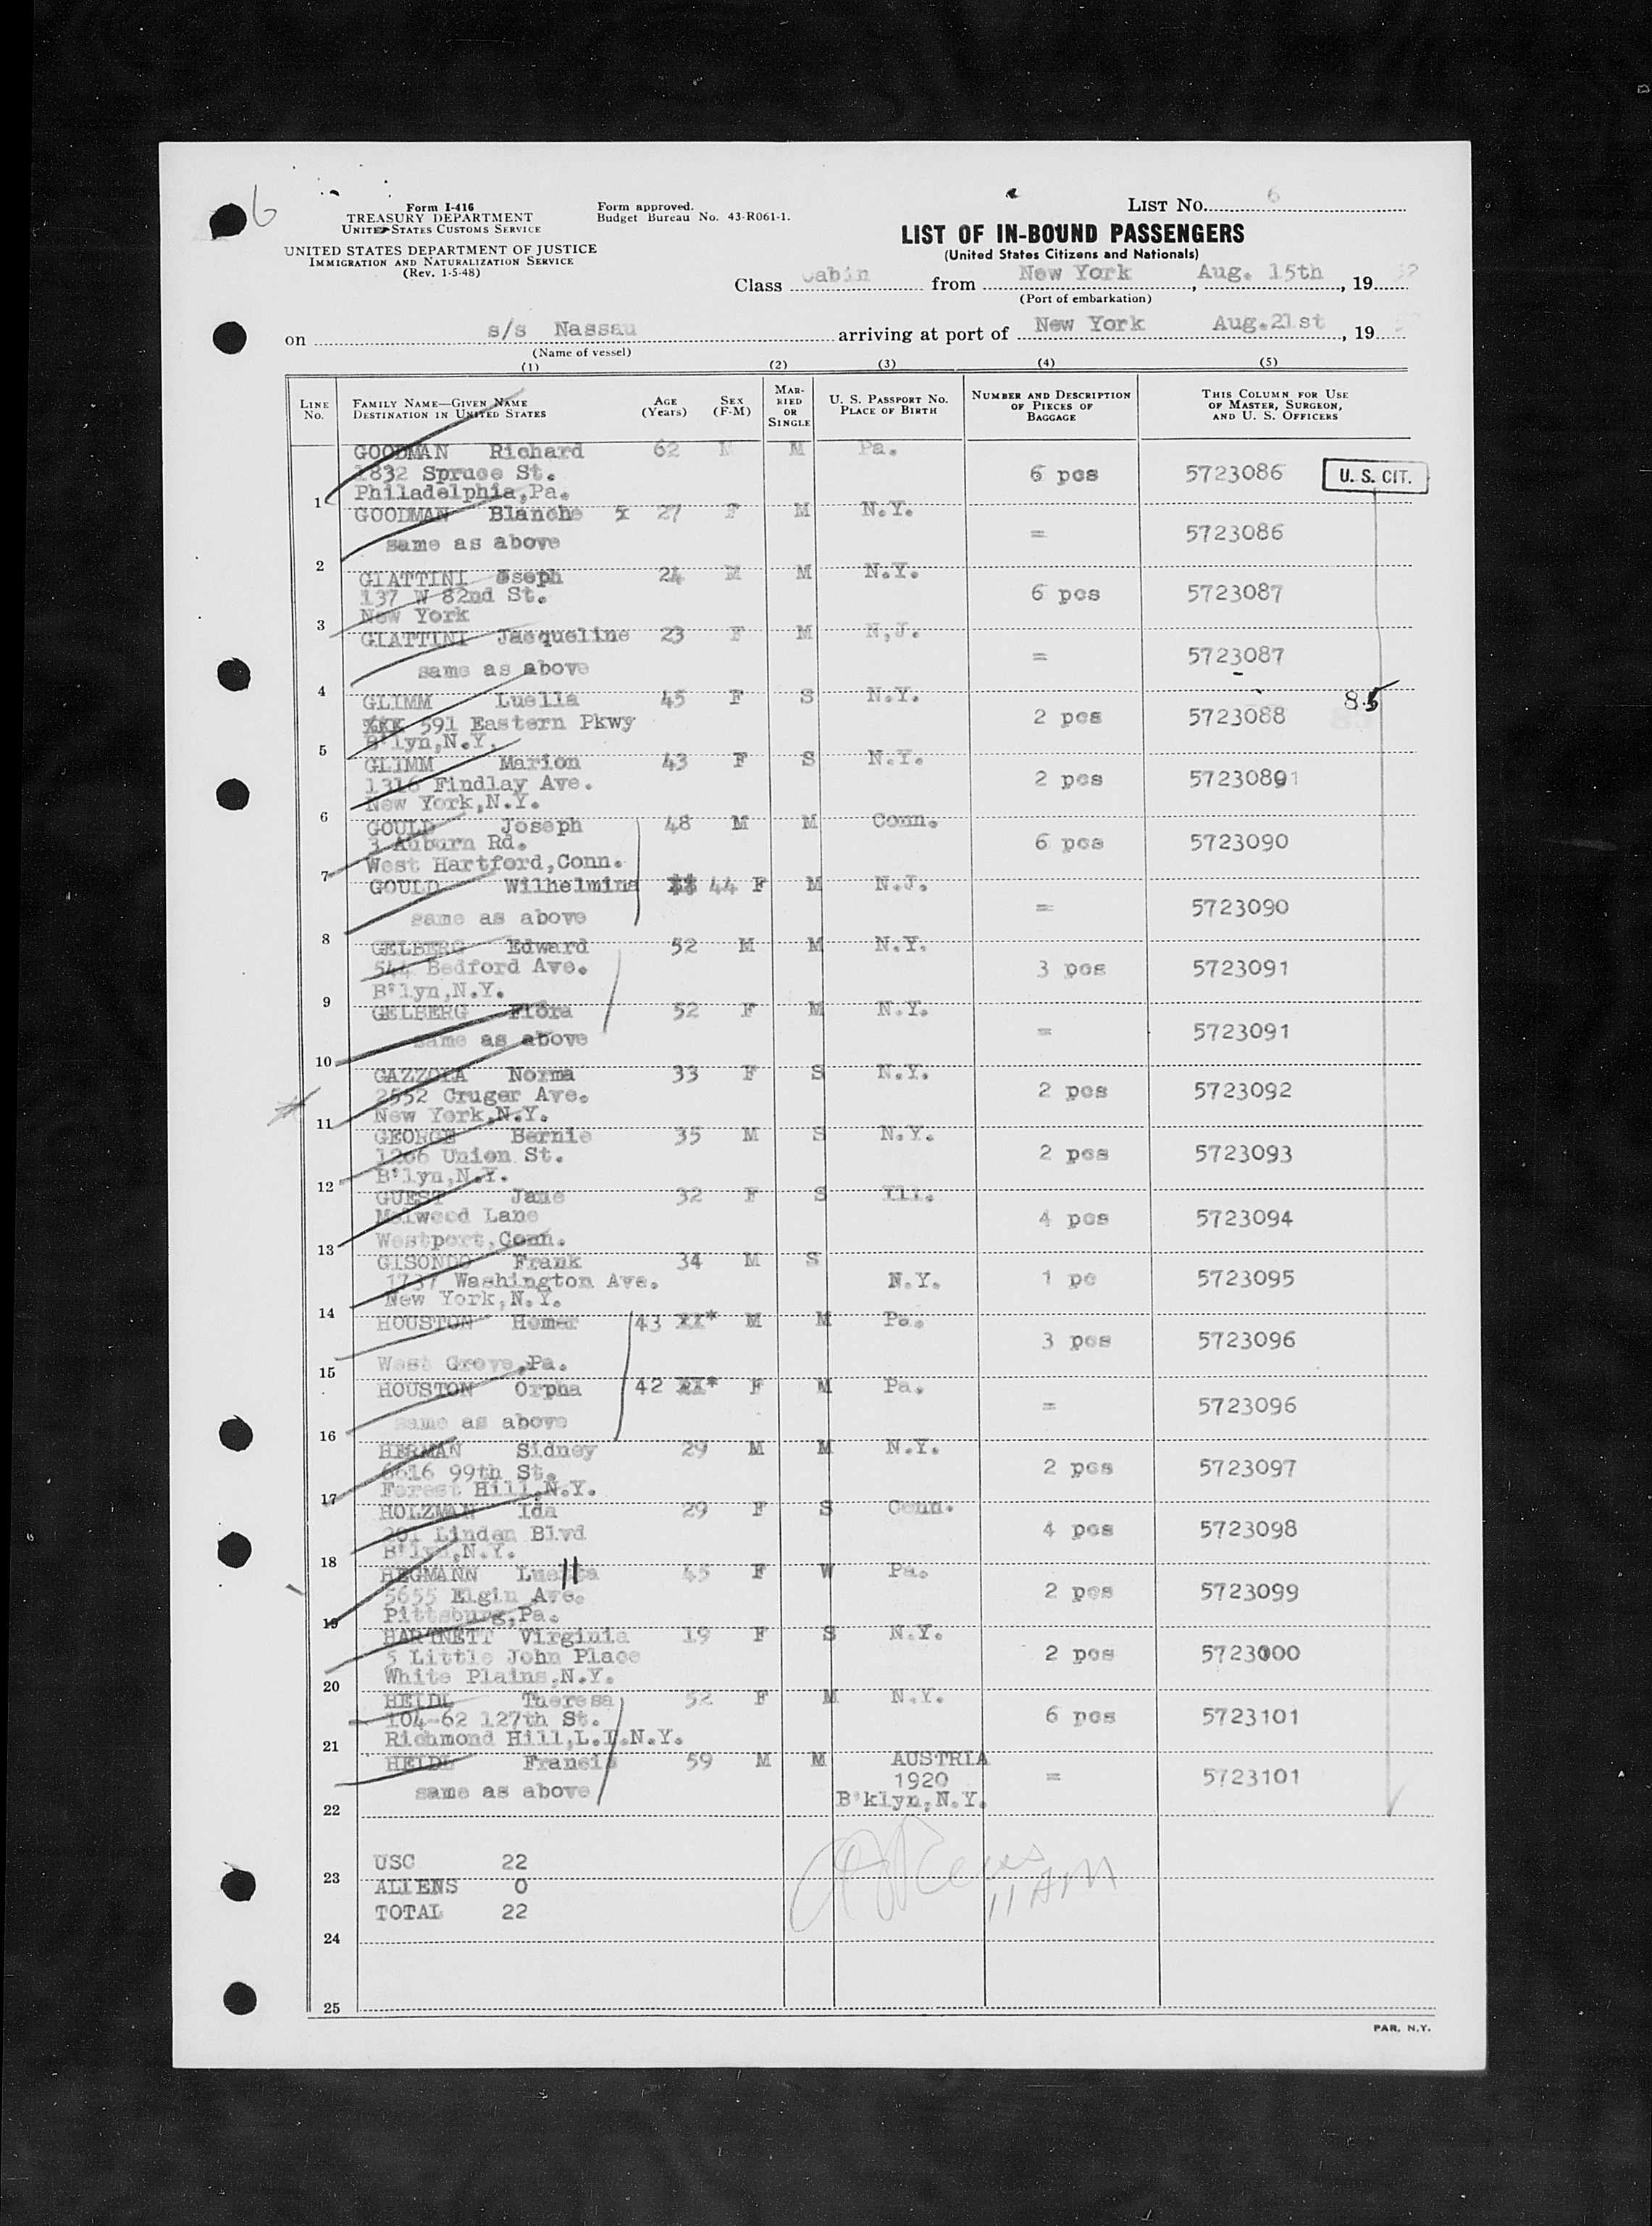 6
Form I-416
TREASURY DEPARTMENT
UNITED STATES CUSTOMS SERVICE
UNITED STATES DEPARTMENT OF JUSTICE
IMMIGRATION AND NATURALIZATION SERVICE
(Rev. 1-5-48)
Form approved.
Budget Bureau No. 43-R061-1.
LIST NO. 6
LIST OF IN-BOUND PASSENGERS
(United States Citizens and Nationals)
Class Cabin from New York, Aug. 15th, 1952
(Port of embarkation)
on s/s Nassau arriving at port of New York Aug.21st, 19
(Name of vessel)
(1) (2) (3) (4) (5)
LINE NO. FAMILY NAME—GIVEN NAME DESTINATION IN UNITED STATES AGE (Years) SEX (F-M) MARRIED OR SINGLE U. S. PASSPORT NO. PLACE OF BIRTH NUMBER AND DESCRIPTION OF PIECES OF BAGGAGE THIS COLUMN FOR USE OF MASTER, SURGEON, AND U. S. OFFICERS
GOODMAN Richard 62 M M Pa.
1832 Spruce St. 6 pcs 5723086 U. S. CIT.
Philadelphia,Pa.
1
GOODMAN Blanche x 27 F M N.Y.
same as above = 5723086
2
GIATTINI Joseph 24 M M N.Y.
137 W 82nd St. 6 pcs 5723087
New York
3
GIATTINI Jacqueline 23 F M N,J.
same as above = 5723087
4
GLIMM Luella 45 F S N.Y. 85
591 Eastern Pkwy 2 pcs 5723088
B'lyn,N.Y.
5
GLIMM Marion 43 F S N.Y.
1316 Findlay Ave. 2 pcs 57230891
New York,N.Y.
6
GOULD Joseph 48 M M Conn.
3 Auburn Rd. 6 pcs 5723090
West Hartford,Conn.
7
GOULD Wilhelmina 44 F M N.J.
same as above = 5723090
8
GELBERG Edward 52 M M N.Y.
544 Bedford Ave. 3 pcs 5723091
B'lyn,N.Y.
9
GELBERG Flora 52 F M N.Y.
same as above = 5723091
10
GAZZOLA Norma 33 F S N.Y.
2552 Cruger Ave. 2 pcs 5723092
New York,N.Y.
11
GEORGE Bernie 35 M S N.Y.
1266 Union St. 2 pcs 5723093
B'lyn,N.Y.
12
GUEST Jane 32 F S Ill.
Lane 4 pcs 5723094
Westport,Conn.
13
GISONDO Frank 34 M S
1737 Washington Ave. N.Y. 1 pc 5723095
New York,N.Y.
14
HOUSTON Homer 43 xx* M M Pa.
3 pcs 5723096
West Grove,Pa.
15
HOUSTON Orpha 42 xx* F M Pa.
same as above = 5723096
16
HERMAN Sidney 29 M M N.Y.
6616 99th St. 2 pcs 5723097
Forest Hill,N.Y.
17
HOLZMAN Ida 29 F S Conn.
Linden Blvd 4 pcs 5723098
B'lyn,N.Y.
18
HEGMANN Luella 45 F W Pa.
5655 Elgin Ave. 2 pcs 5723099
Pittsburg,Pa.
19
HARTNETT Virginia 19 F S N.Y.
5 Little John Place 2 pcs 5723000
White Plains,N.Y.
20
HEIDL Theresa 52 F M N.Y.
104-62 127th St. 6 pcs 5723101
Richmond Hill,L.I.N.Y.
21
HEIDL Francis 59 M M AUSTRIA
same as above 1920 = 5723101
B'klyn,N.Y.
22
USC 22
23
ALIENS 0 11 AM
TOTAL 22
24
25
PAR. N.Y.